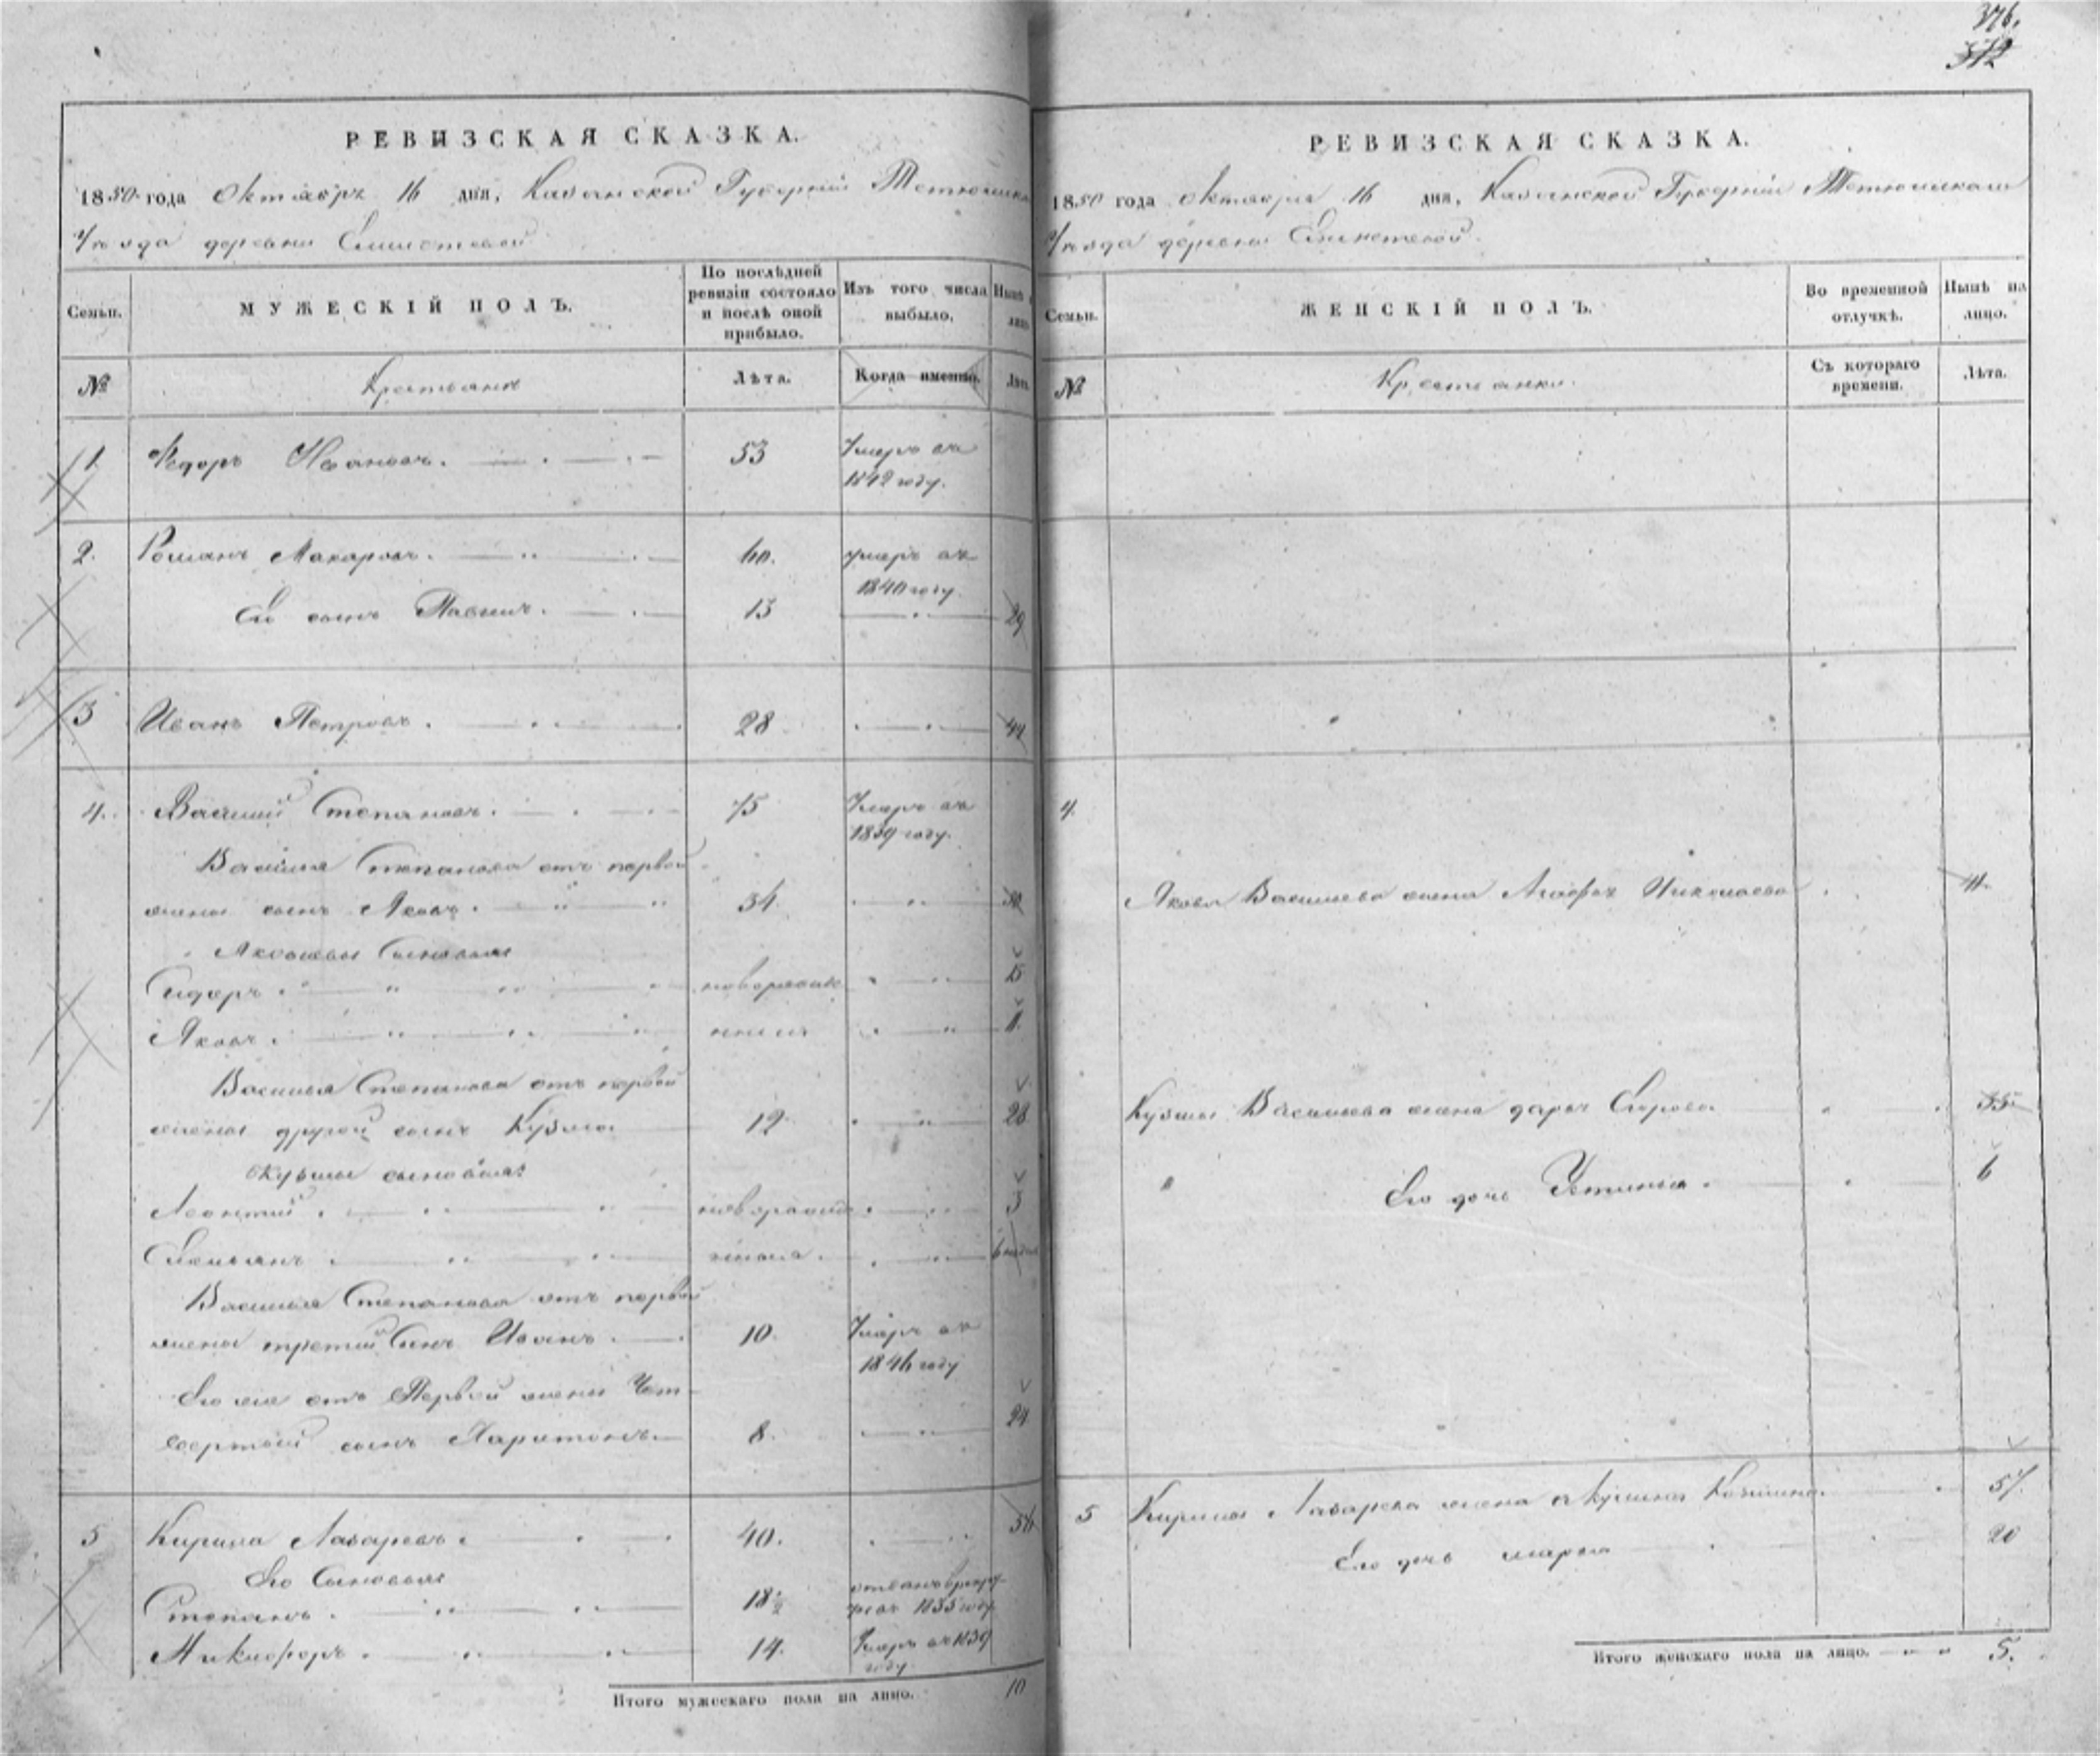 376.
372
РЕВИЗСКАЯ СКАЗКА.
1850 года Октября 16 дня, Казанской Губернии Тетюшска
Уѣзда деревни
Семьи.
МУЖЕСКІЙ ПОЛЪ.
По послѣдней ревизіи состояло и послѣ оной прибыло.
Изъ того числа выбыло.
Нынѣ на лицо.
№
Крестьяне
Лѣта.
Когда именно.
Лѣта.
1 Федоръ Ивановъ. 53 Умеръ въ
1842 году.
2. Романъ Макаровъ. 60. умеръ въ
1840 году.
Его сынъ 13 29
3 Иванъ Петровъ. 28 44
4. Василий Степановъ. 75 Умеръ въ
1839 году.
Василья Степанова отъ первой
жены сынъ Яковъ. 34. 50
Яковлевы Сыновья
Сидоръ. новорожде 15
Яковъ. нныя 11.
Василья Степанова отъ первой
жены другой сынъ Кузма 12 28
Кузмы сыновья:
Леонтий. новорожде 3
нныя.
Василья Степанова отъ первой
жены третий Сынъ Иванъ. 10. Умеръ въ
1846 году
Его же отъ Первой жены Чет-
вертый сынъ Харитонъ 8. 24
5 Кирила Лазаревъ. 40. 56
Его Сыновья
Степанъ. 18½ отданъ в рекру-
ты въ 1835 году
Никифоръ. 14. Умеръ въ 1839
году
Итого мужескаго пола на лицо. 10
РЕВИЗСКАЯ СКАЗКА.
1850 года октября 16 дня, Казанской Губернии Тетюшскаго
Уѣзда деревни
Семьи.
ЖЕНСКІЙ ПОЛЪ.
Во временной отлучкѣ.
Нынѣ на лицо.
№
Крестьянки.
Съ котораго времени.
Лѣта.
4.
Якова Васильева жена Николаева
Кузмы Васильева жена дарья 35
Его дочь Устинья. 6
5 Кирилы Лазарева жена Акулина 57.
Его дочь марья 20
Итого женскаго пола на лицо. 5.